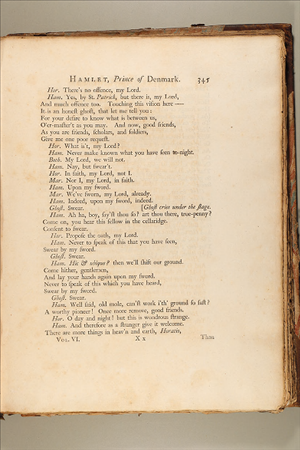 HAMLET, Prince of Denmark. 345
Hor. There's no offence, my Lord.
Ham. Yes, by St. Patrick, but there is, my Lord,
And much offence too. Touching this vision here —
It is an honest ghost, that let me tell you:
For your desire to know what is between us,
O'er-master't as you may. And now, good friends,
As you are friends, scholars, and soldiers,
Give me one poor request.
Hor. What is't, my Lord?
Ham. Never make known what you have seen to-night.
Both. My Lord, we will not.
Ham. Nay, but swear't.
Hor. In faith, my Lord, not I.
Mar. Nor I, my Lord, in faith.
Ham. Upon my sword.
Mar. We've sworn, my Lord, already.
Ham. Indeed, upon my sword, indeed.
Ghost. Swear. [Ghost cries under the stage.
Ham. Ah ha, boy, say'st thou so? art thou there, true-penny?
Come on, you hear this fellow in the cellaridge.
Consent to swear.
Hor. Propose the oath, my Lord.
Ham. Never to speak of this that you have seen,
Swear by my sword.
Ghost. Swear.
Ham. Hic & ubique? then we'll shift our ground.
Come hither, gentlemen,
And lay your hands again upon my sword.
Never to speak of this which you have heard,
Swear by my sword.
Ghost. Swear.
Ham. Well said, old mole, can'st work i'th' ground so fast?
A worthy pioneer! Once more remove, good friends.
Hor. O day and night! but this is wondrous strange.
Ham. And therefore as a stranger give it welcome.
There are more things in heav'n and earth, Horatio,
VOL. VI. X x Than